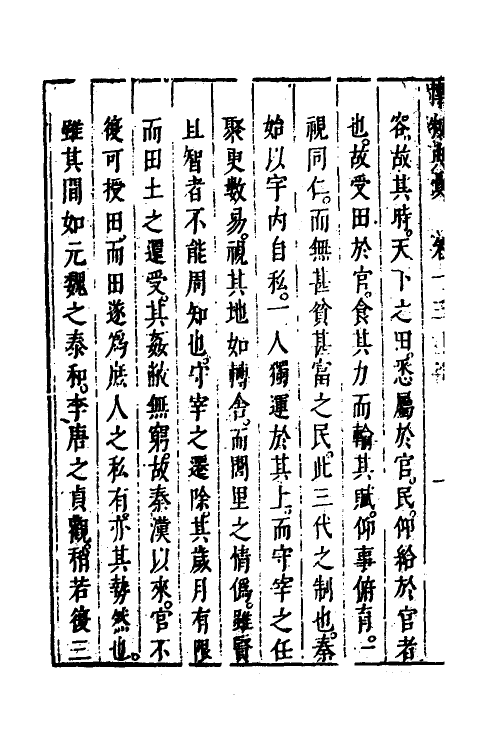 容故其時天下之田悉屬於官民仰給於官者
也故受田於官食其力而輸其賦仰事俯育一
視同仁而無甚貧甚富之民此三代之制也秦
始以宇內自私一人獨運於其上而守宰之任
聚更數易視其地如轉舍而閭里之情僞雖賢
且智者不能周知也守宰之遷除其歲月有限
而田土之還受其姦敝無窮故秦漢以來官不
復可授田而田遂爲庶人之私有亦其勢然也
雖其間如元魏之泰和李唐之貞觀稍若復三